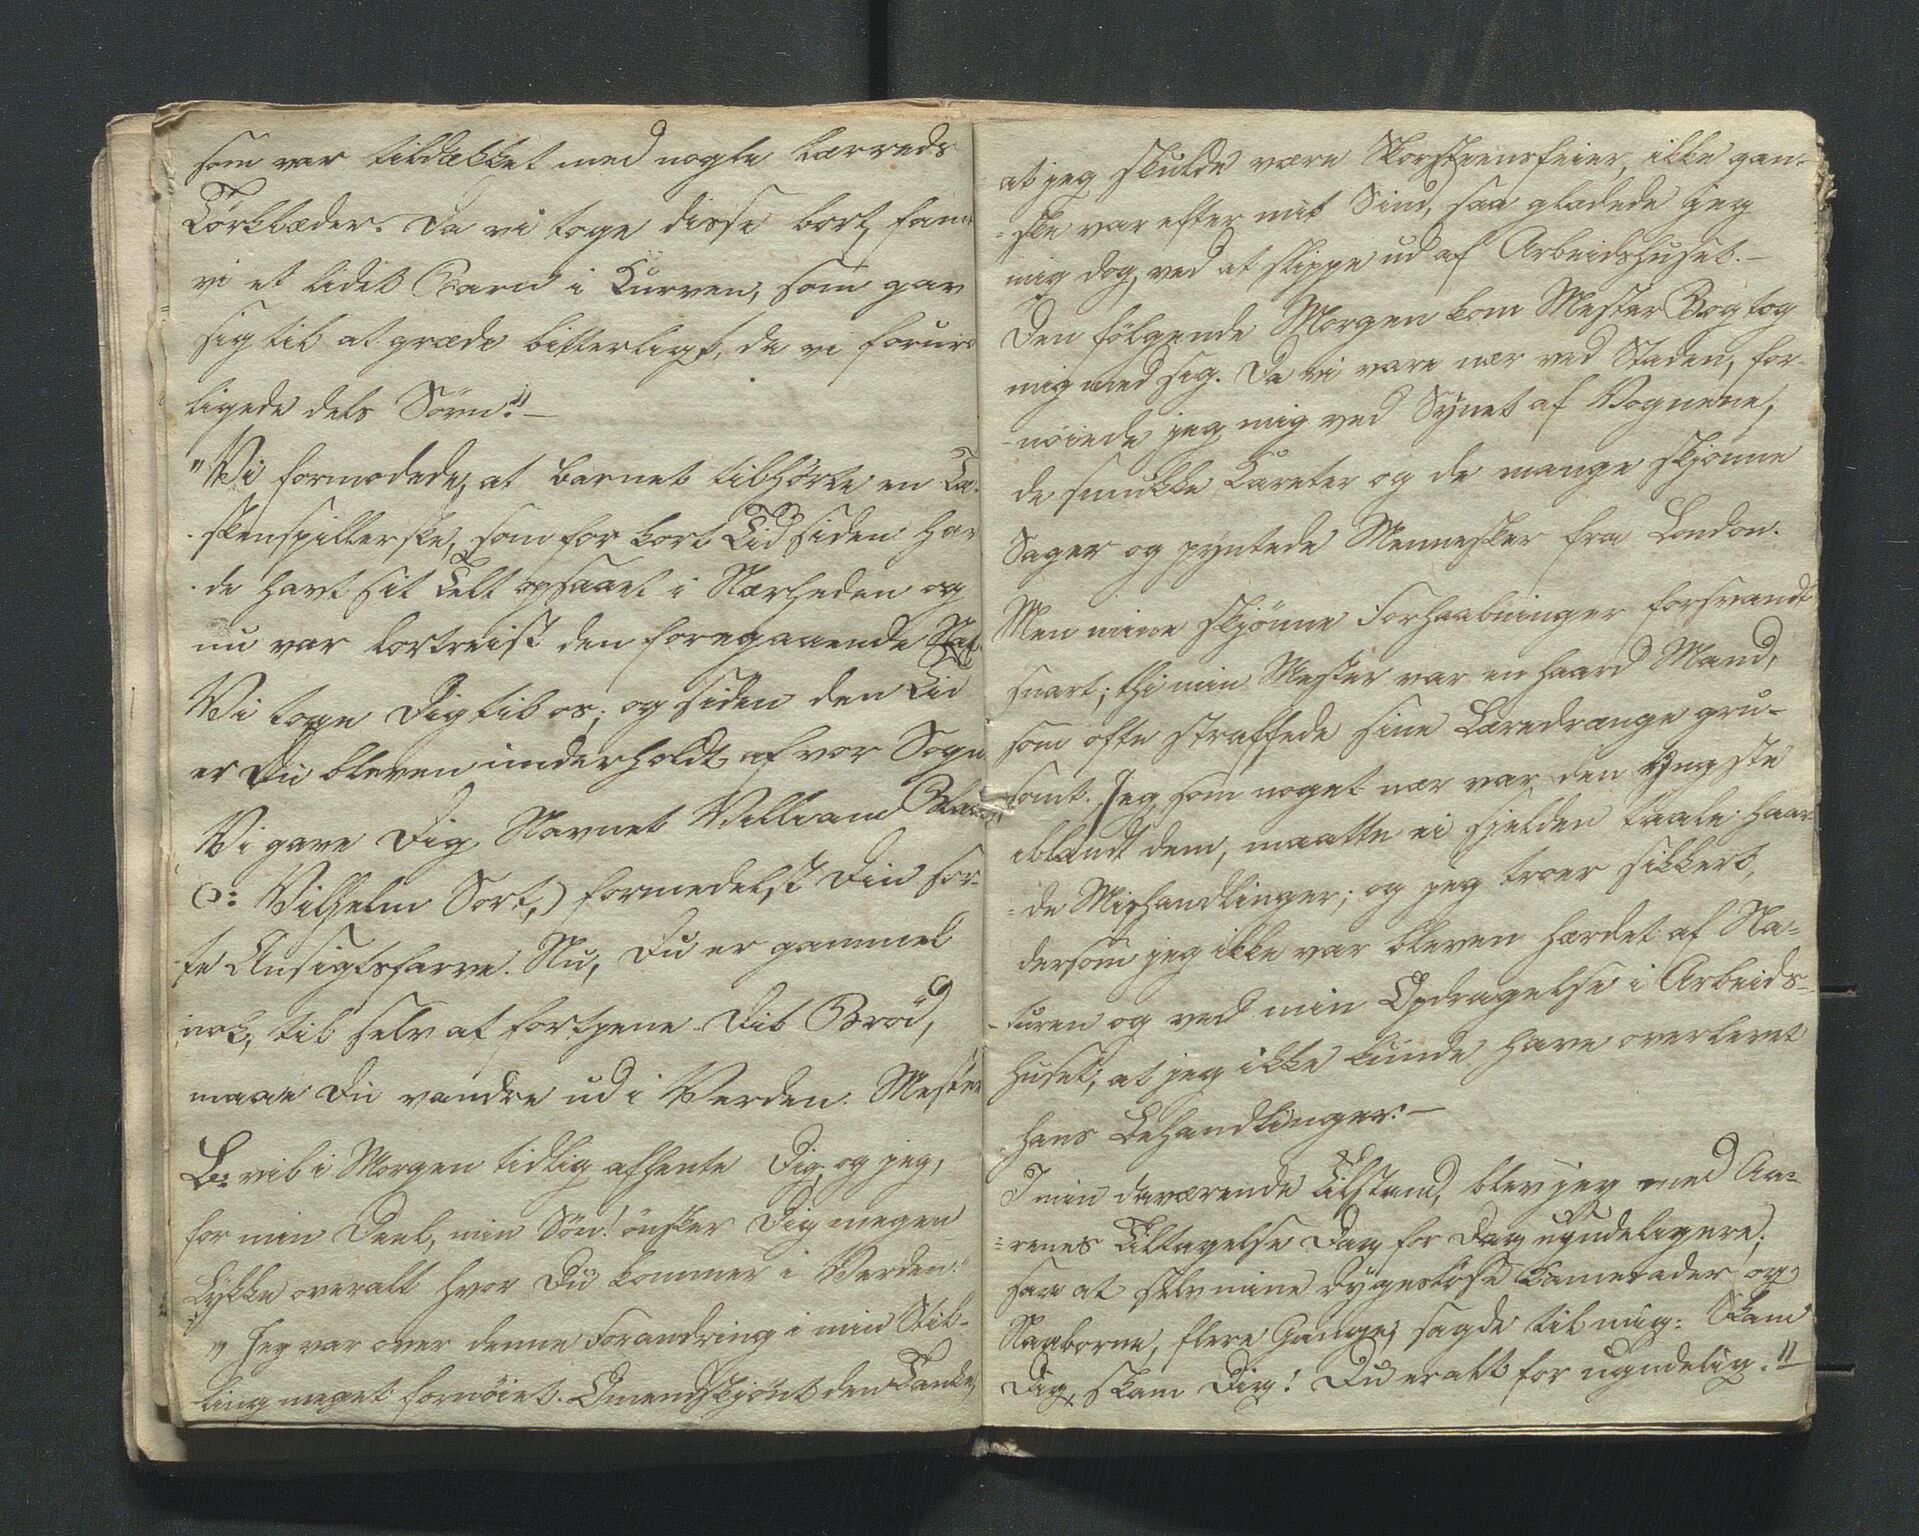 som var tildækket med nogle Lærreds
Törklæder. Da vi toge disse bort, fan-
vi et lidet Barn i Kurven, som gav
sig til at græde bitterligt, da vi forur
ligede dets Sövn."—
"Vi formodede, at Barnet tilhörte en Ta-
skenspillerske, som for kort Tid siden hav
de havt sit Telt opslaaet i Nærheden og
nu var bortreist den foregaaende Nat.
Vi toge Dig til os; og siden den Tid
er Du bleven underholdt af vor Sogn
Vi gave Dig Navnet Villiam Black
(ɔ: Vilhelm Sort,) formedelst Din sor-
te Ansigtsfarve. Nu, Du er gammel
nok, til selv at fortjene Dit Bröd,
maae Du vandre ud i Verden. Mester
B: vil i Morgen tidlig afhente Dig; og jeg,
for min Deel, min Sön! önsker Dig megen
Lykke overalt hvor Du kommer i Verden."
"Jeg var over denne Forandring i min Stil-
ling meget fornöiet. Omendskjönt den Tanke,
at jeg skulde være Skorsteensfeier, ikke gan-
-ske var efter mit Sind, saa glædede jeg
mig dog, ved at slippe ud af Arbeidshuset.—
Den fölgende Morgen kom Mester B og tog
mig med sig. Da vi vare nær ved Staden, for-
-nöiede jeg mig ved Synet af Vognene,
de smukke Kareter og de mange skjönne
Sager og pyntede Mennesker fra London.
Men mine skjönne Forhaabninger forsvandt
snart; thi min Mester var en haard Mand,
som ofte straffede sine Læredrenge gru-
somt. Jeg, som noget nær var den Yngste
iblandt dem, maatte ei sjelden taale haar
-de Mishandlinger; og jeg troer sikkert,
dersom jeg ikke var bleven hærdet af Na-
-turen og ved min Opdragelse i Arbeids-
huset, at jeg ikke kunde have overlevet
hans Behandlinger.—
I min daværende Tilstand, blev jeg med Aa-
-renes Tiltagelse Dag for Dag ugudeligere;
saa at selv mine dydeslöse Kamerader og
Naaborne, flere Gange, sagde til mig: Skam
Dig, skam Dig! Du er alt for ugudelig."